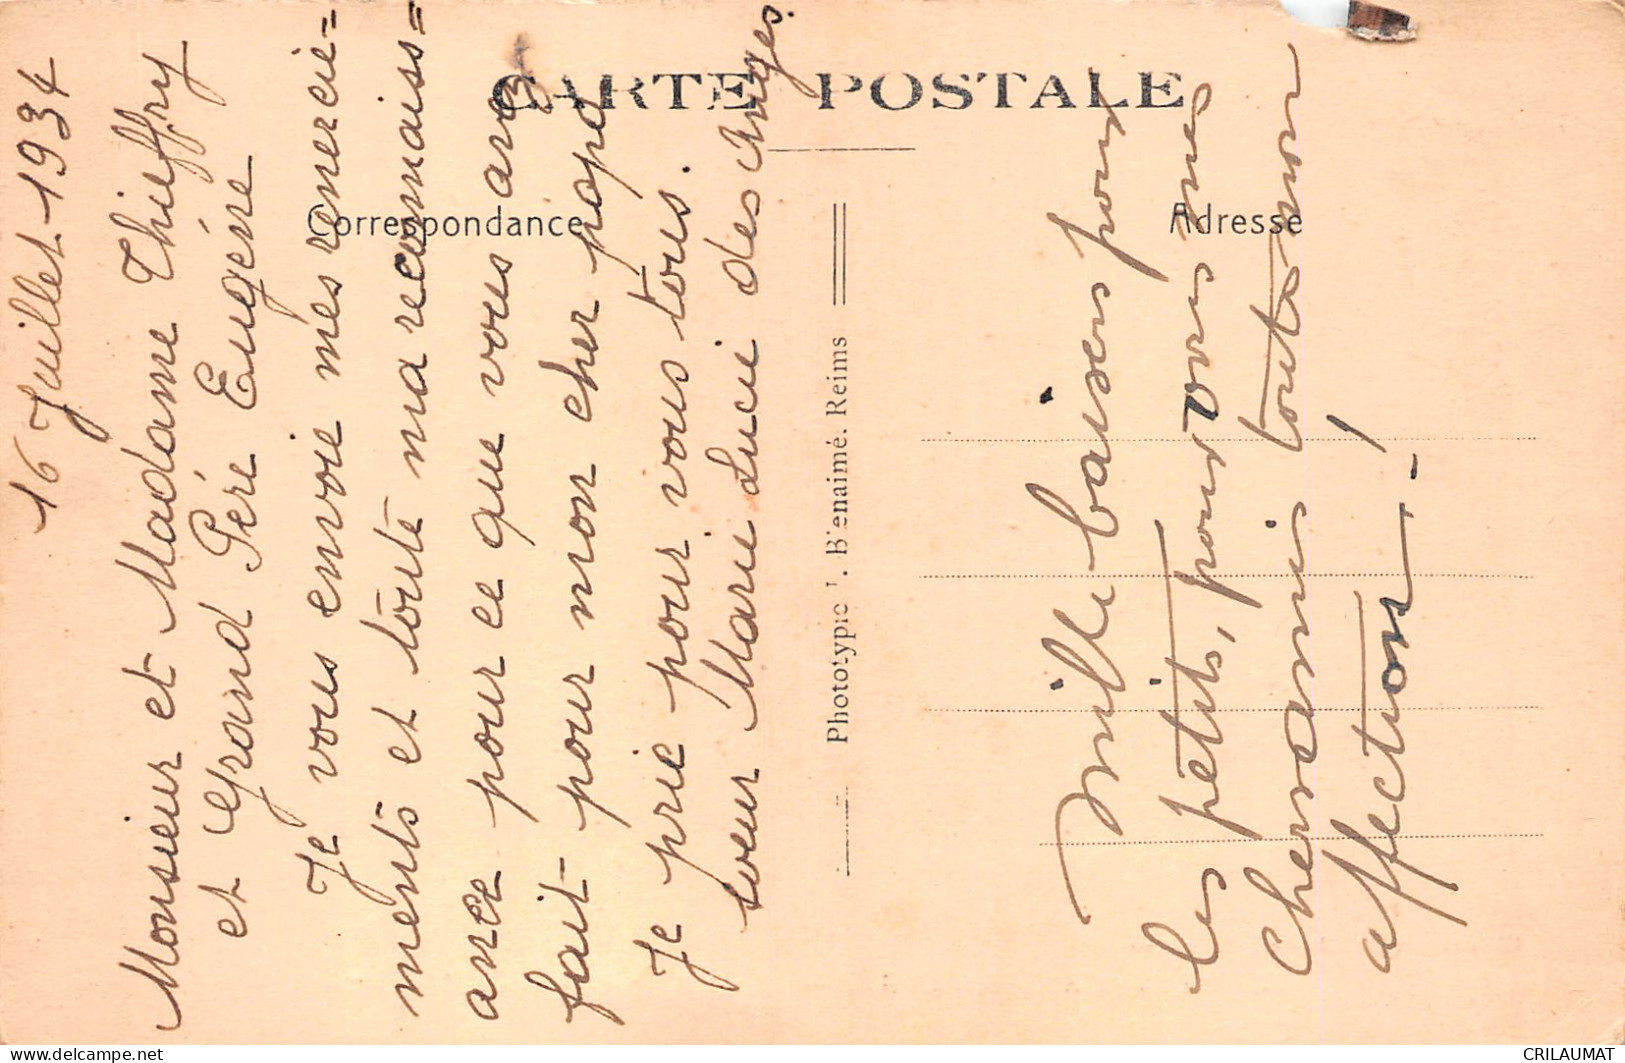 CARTE POSTALE
Correspondance
Adresse
Phototypie J. Bienaimé. Reims
16 Juillet - 1934
Monsieur et Madame Thieffry
et Grand Péré Eugéne
Je vous envoie mes remercie=
ments et toute ma reconnaiss=
ance pour ce que vous avez
fait pour mon cher papa
Je prie pour vous tous.
soeur Marie Lucie des Anges
Mille baisers pour
les petits, pour vous mes
chers amis toute mon
affection - !
www.delcampe.net
CRILAUMAT